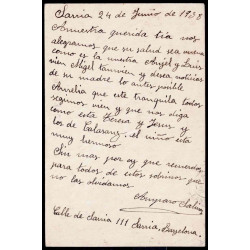 Sarria 24 de Junio de 1938
Nuestra querida tia nos
alegramos que su salud sea buena
como es la nuestra Angel y Luis
vien Migel tamvien y desea noticias
de su madre lo antes posible
Amelia que este tranquila todos
seguimos vien y que nos diga
como esta Teresa y Jesus y
los de Calasanz, el niño esta
muy hermoso
Sin mas por oy que recuerdos
para todos de estos sobrinos que
no las olvidamos
Amparo
Calle de Sarria 111 Sarria, Barcelona.